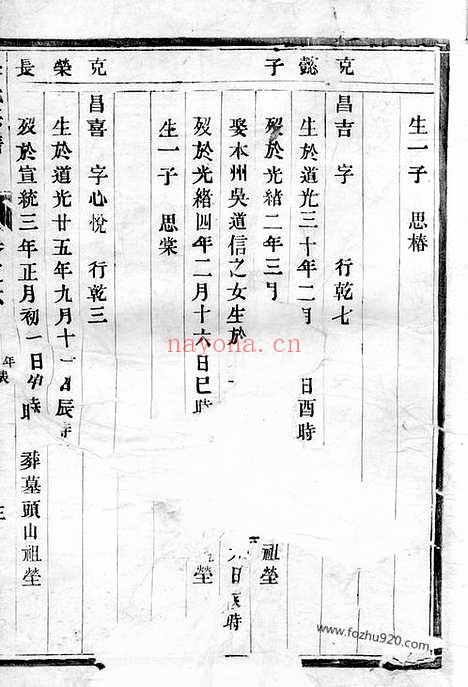 生一子 思椿
克懿子
昌吉 字 行乾七
生於道光三十年二月 日酉時
歿於光緒二年三月 祖塋
娶本州吳道信之女生於 日 時
歿於光緒四年二月十六日巳時 塋
生一子 思棠
克榮長
昌喜 字心悅 行乾三
生於道光廿五年九月十 日辰時
歿於宣統三年正月初一日 時 葬墓頭山祖塋
年表
nayona.cn
www.fozhu920.com